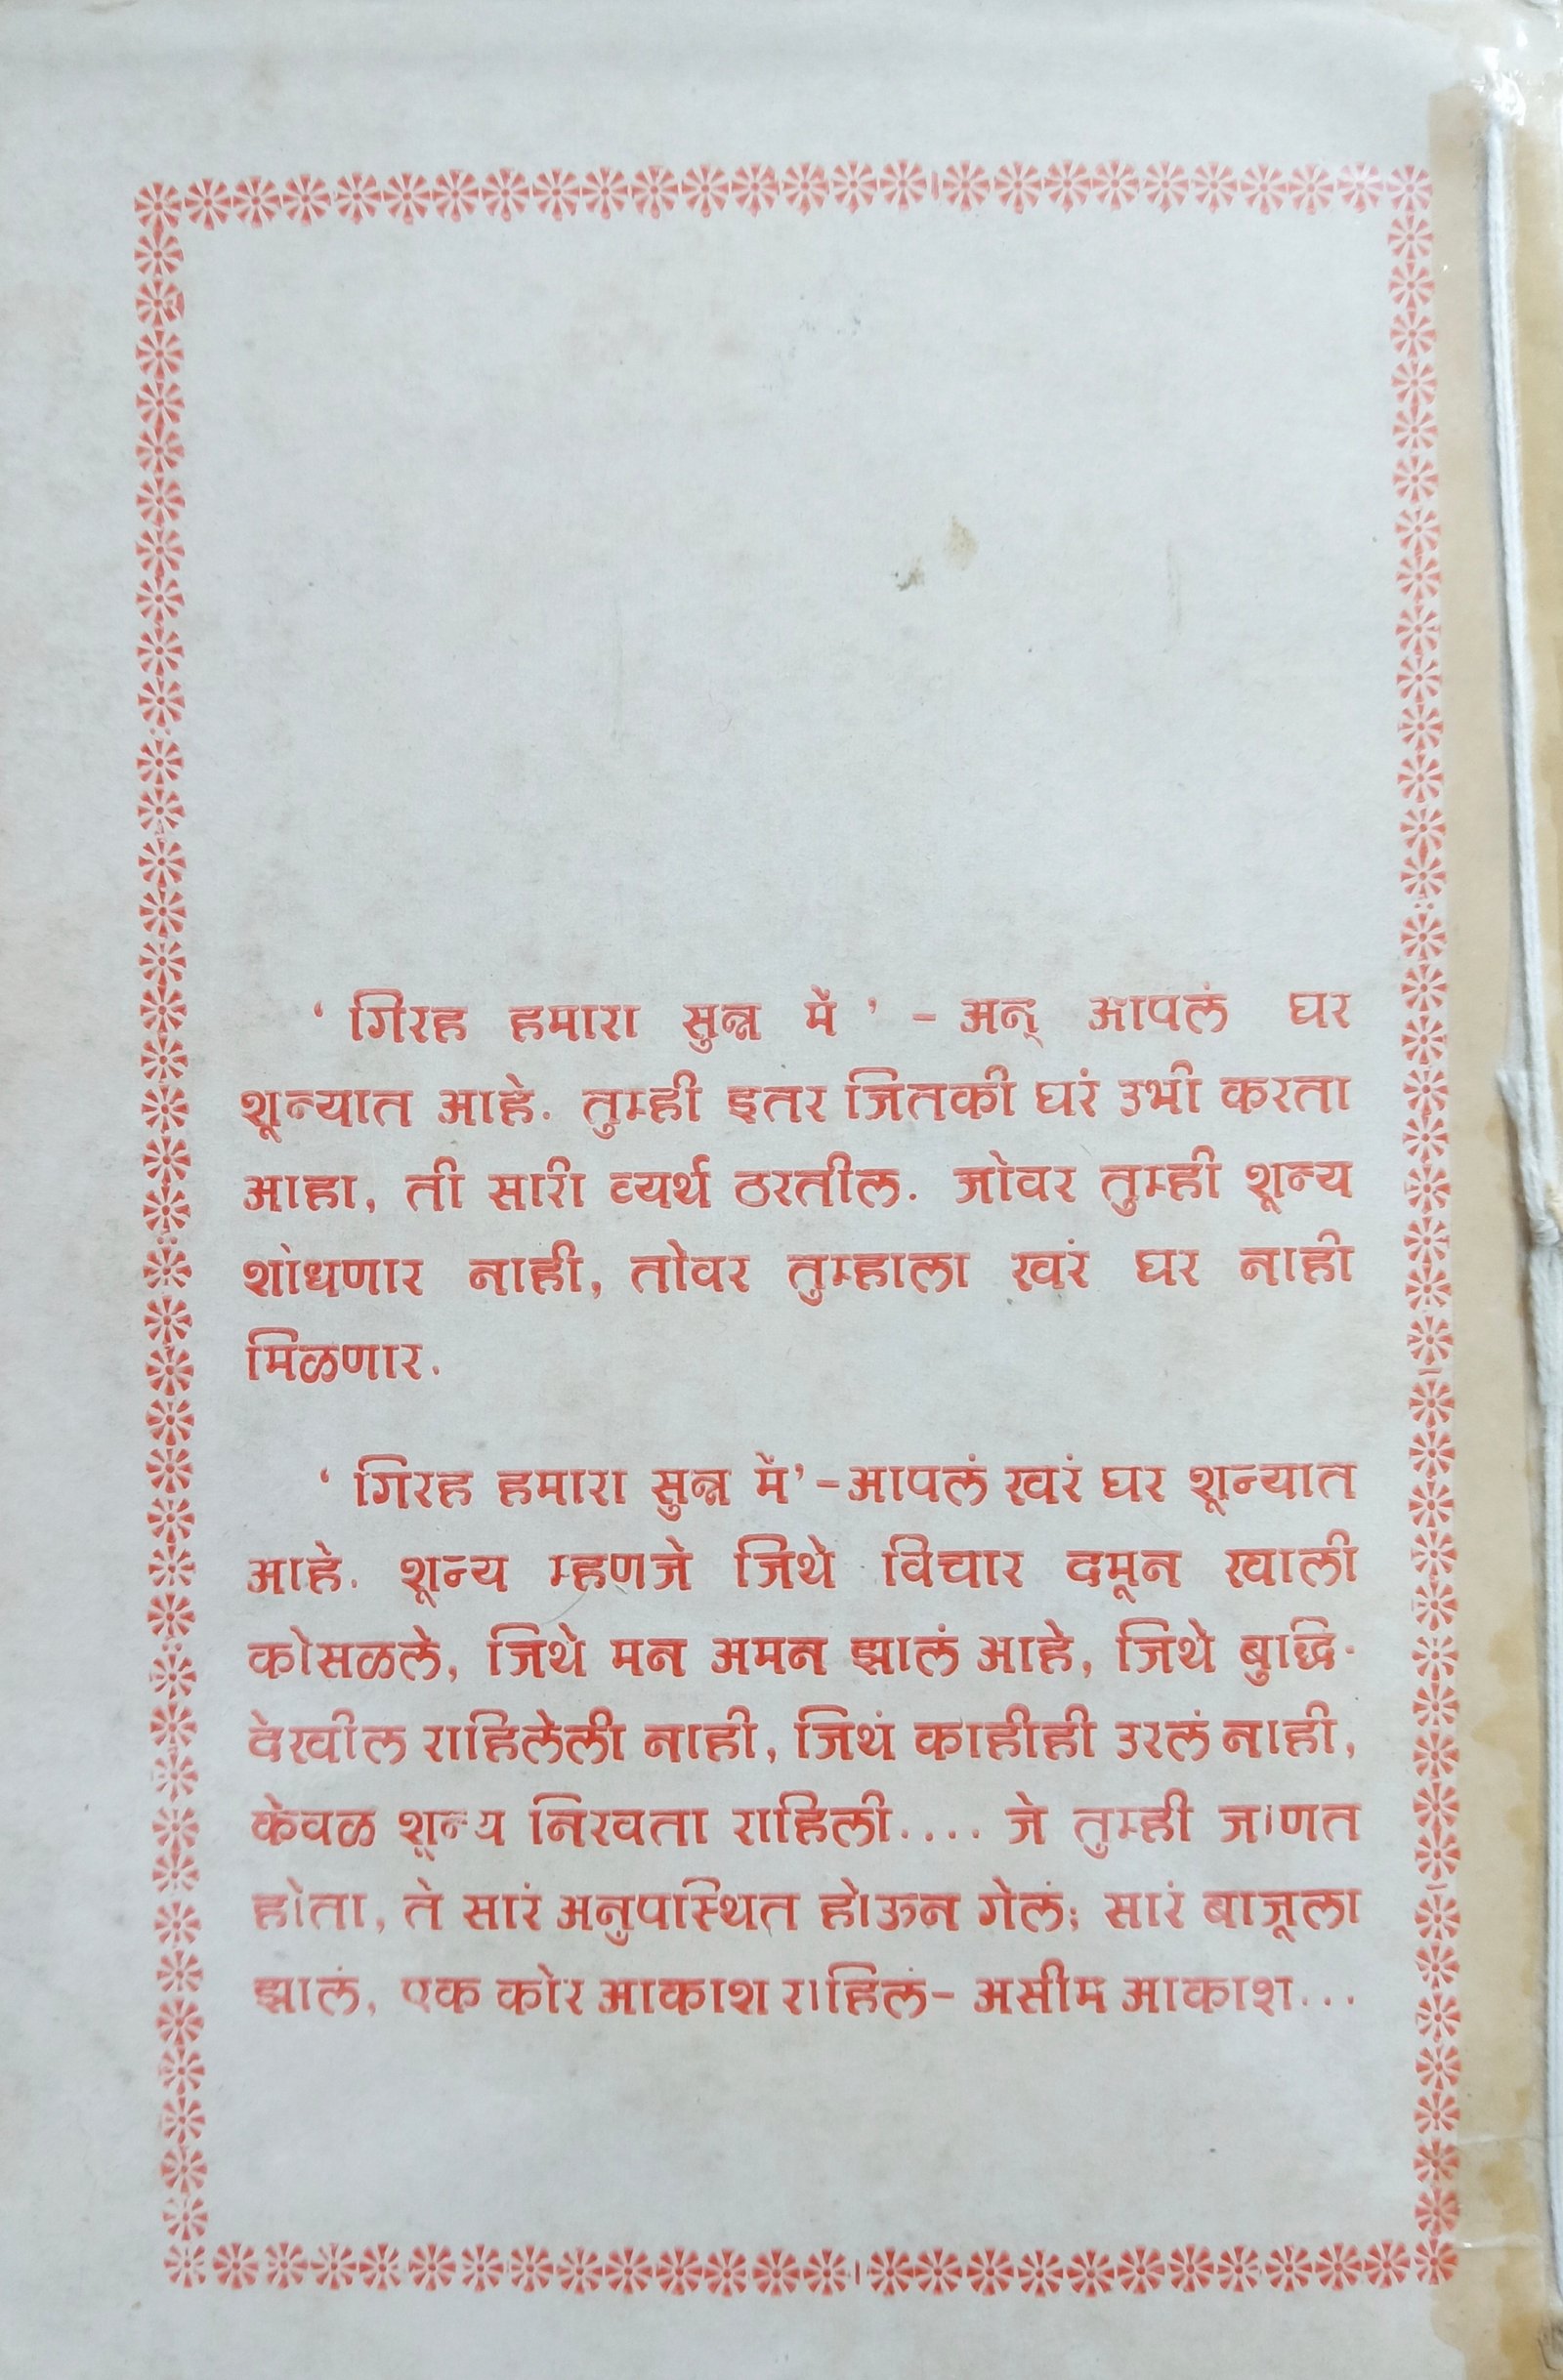 ‘ गिरह हमारा सुन्न में ’ – अन् आपलं घर
शून्यात आहे. तुम्ही इतर जितकी घरं उभी करता
आहा, ती सारी व्यर्थ ठरतील. जोवर तुम्ही शून्य
शोधणार नाही, तोवर तुम्हाला खरं घर नाही
मिळणार.
‘ गिरह हमारा सुन्न में’–आपलं खरं घर शून्यात
आहे. शून्य म्हणजे जिथे विचार दमून खाली
कोसळले, जिथे मन अमन झालं आहे, जिथे बुद्धि-
देखील राहिलेली नाही, जिथं काहीही उरलं नाही,
केवळ शून्य निरवता राहिली.... जे तुम्ही जाणत
होता, ते सारं अनुपस्थित होऊन गेलं; सारं बाजूला
झालं, एक कोर आकाश राहिलं– असीम आकाश...